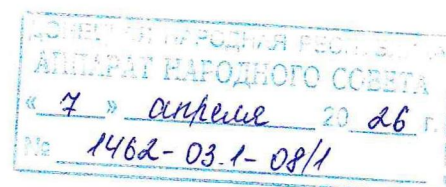 ДОНЕЦКАЯ НАРОДНАЯ РЕСПУБЛИКА
АППАРАТ НАРОДНОГО СОВЕТА
« 7 » апреля 20 26 г.
№ 1462-03.1-08/1